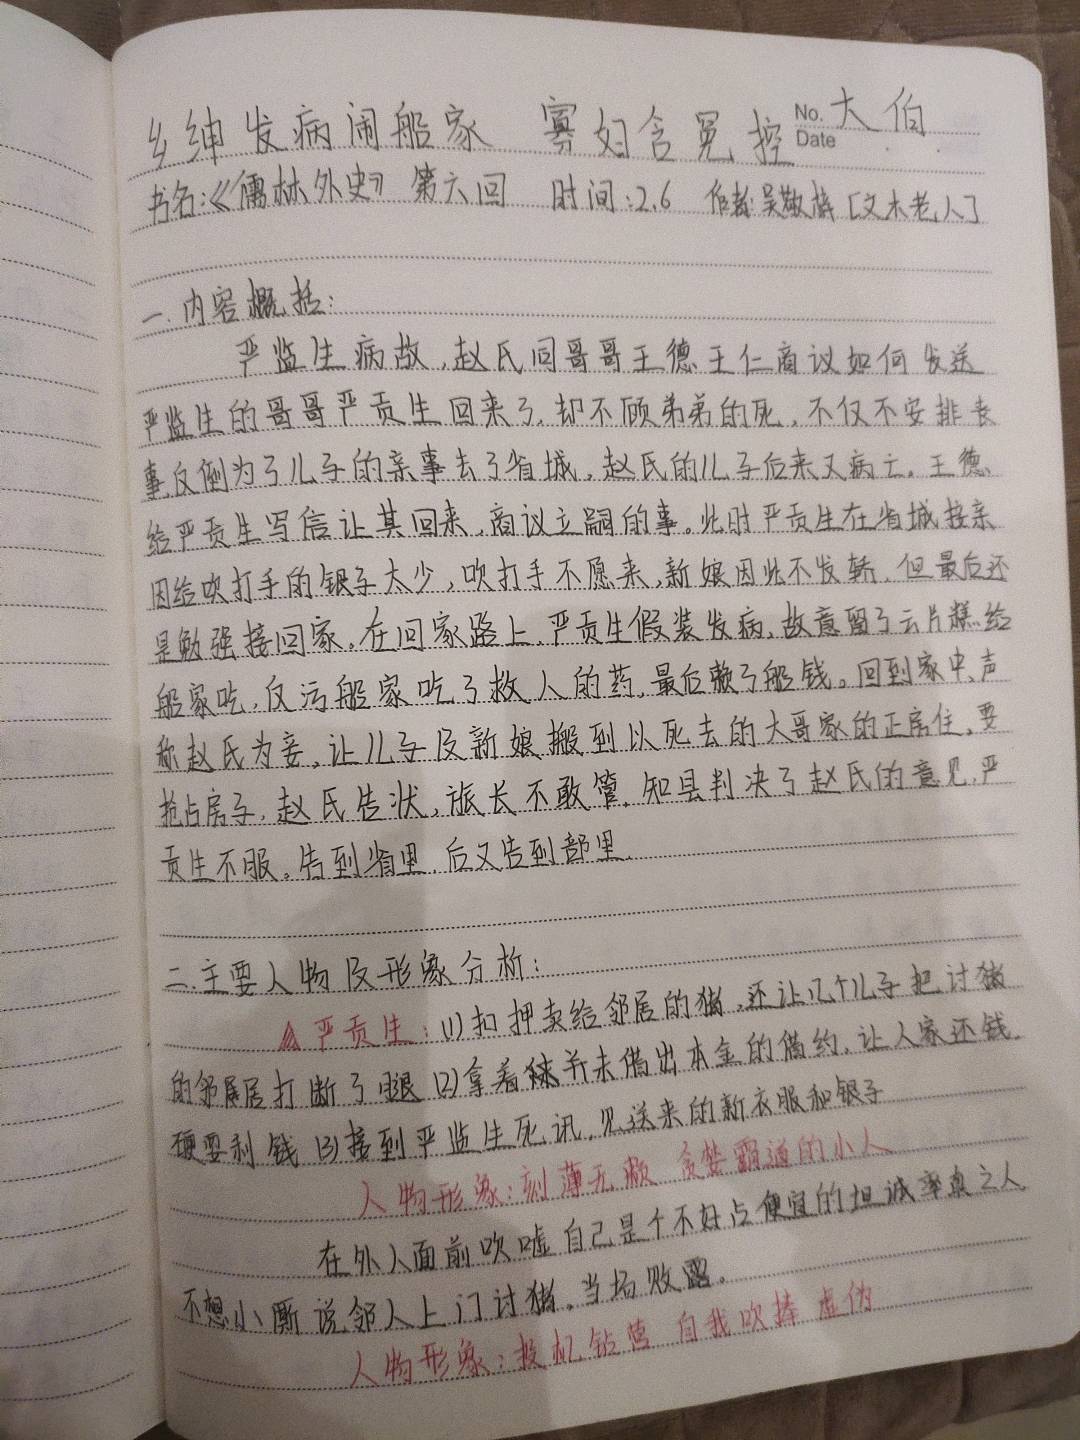 乡绅发病闹船家 寡妇含冤控大伯
No.
Date
书名:《儒林外史》 第六回 时间:2.6 作者:吴敬梓[文木老人]
一.内容概括:
严监生病故,赵氏同哥哥王德王仁商议如何发送
严监生的哥哥严贡生回来了,却不顾弟弟的死,不仅不安排丧
事,反倒为了儿子的亲事去了省城,赵氏的儿子后来又病亡。王德
给严贡生写信让其回来,商议立嗣的事。此时严贡生在省城接亲
因给吹打手的银子太少,吹打手不愿来,新娘因此不发轿,但最后还
是勉强接回家。在回家路上,严贡生假装发病,故意留了云片糕给
船家吃,反污船家吃了救人的药,最后赖了船钱。回到家中、声
称赵氏为妾,让儿子及新娘搬到以死去的大哥家的正房住,要
抢占房子,赵氏告状,族长不敢管,知县判决了赵氏的意见,严
贡生不服。告到省里,后又告到部里.
二.主要人物及形象分析:
严贡生:(1)扣押卖给邻居的猪,还让几个儿子把讨猪
的邻居打断了腿(2)拿着并未借出本金的借约,让人家还钱.
硬要利钱(3)接到严监生死讯,见送来的新衣服和银子
人物形象:刻薄无赖 贪婪霸道的小人
在外人面前吹嘘自己是个不好占便宜的坦诚率真之人
不想小厮说邻人上门讨猪,当场败露。
人物形象:投机钻营 自我吹捧 虚伪